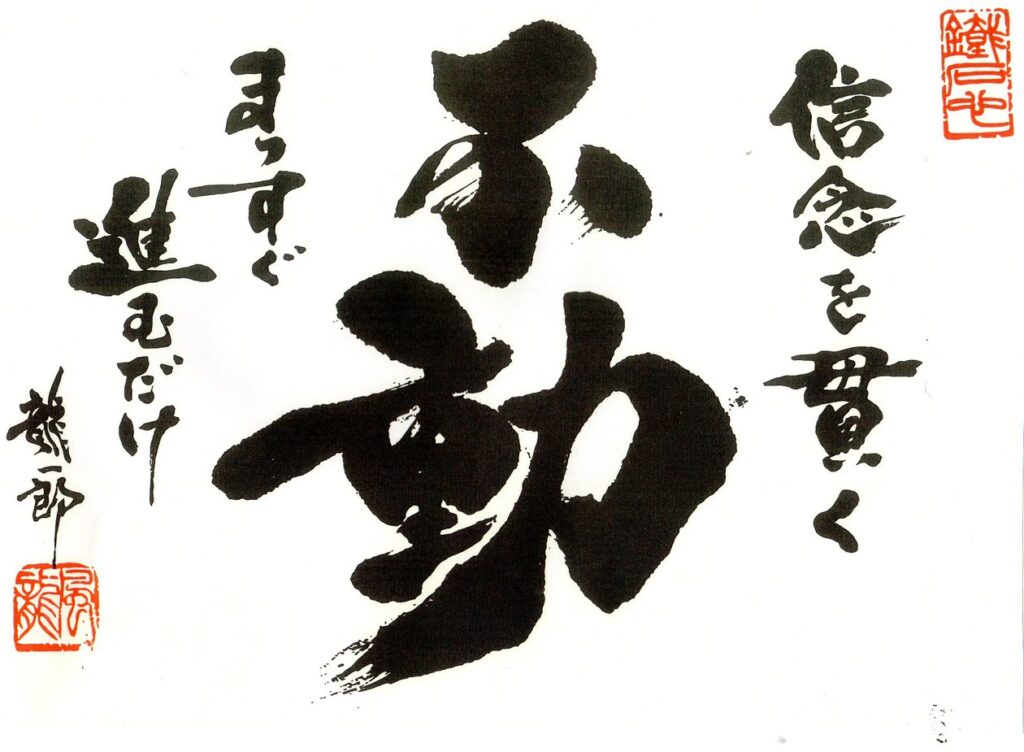 信念を貫く
不動
まっすぐ
進むだけ
龍一郎
風龍